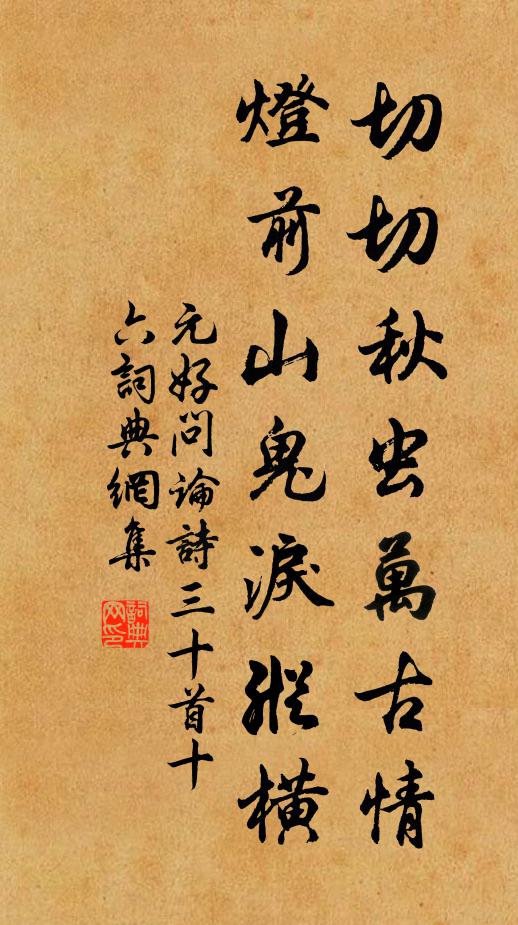 切切秋虫萬古情
燈前山鬼淚縱橫
元好問論詩三十首十
六詞典網集
詞典网印